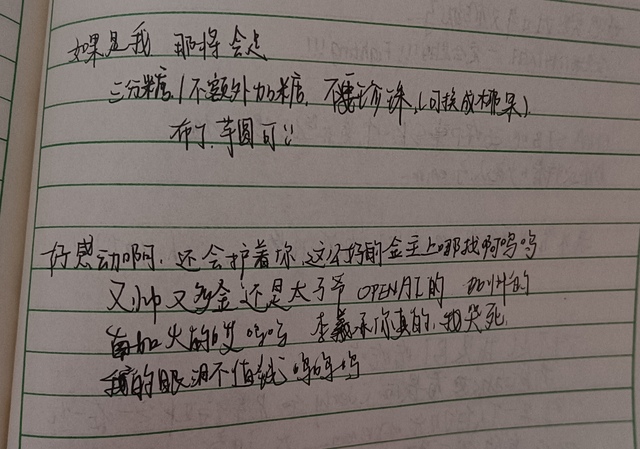 如果是我 那将会点
三分糖/不额外加糖，不要珍珠，(可换成椰果)
布丁，芋圆可!!
好感动啊，还会护着你，这么好的金主上哪找啊呜呜
又帅又多金还是太子爷 OPEN 的 的
加火的 呜呜 李 你真的，我哭死，
我的眼泪不值钱 呜呜呜